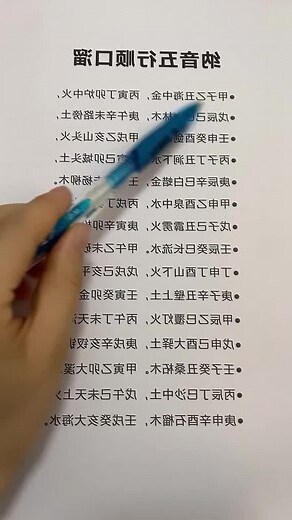 纳音五行顺口溜
●甲子乙丑海中金，丙寅丁卯炉中火，
●戊辰己 林木，庚午辛未路傍土，
●壬申癸酉剑 甲戌乙亥山头火，
●丙子丁丑涧下水， 寅己卯城头土，
●庚辰辛巳白蜡金，壬 杨柳木。
●甲申乙酉泉中水，丙戌丁
●戊子己丑霹雳火，庚寅辛卯松
●壬辰癸巳长流水，甲午乙未砂
●丙申丁酉山下火，戊戌己亥平
●庚子辛丑壁上土，壬寅癸卯金
●甲辰乙巳覆灯火，丙午丁未天
●戊申己酉大驿土，庚戌辛亥钗钏
●壬子癸丑桑柘木，甲寅乙卯大溪
●丙辰丁巳沙中土，戊午己未天上火
●庚申辛酉石榴木，壬戌癸亥大海水。